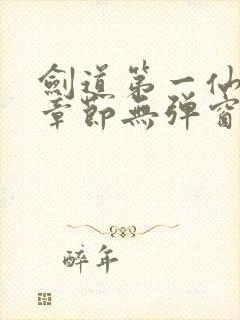 劍道第一仙
章節無彈窗
醉年